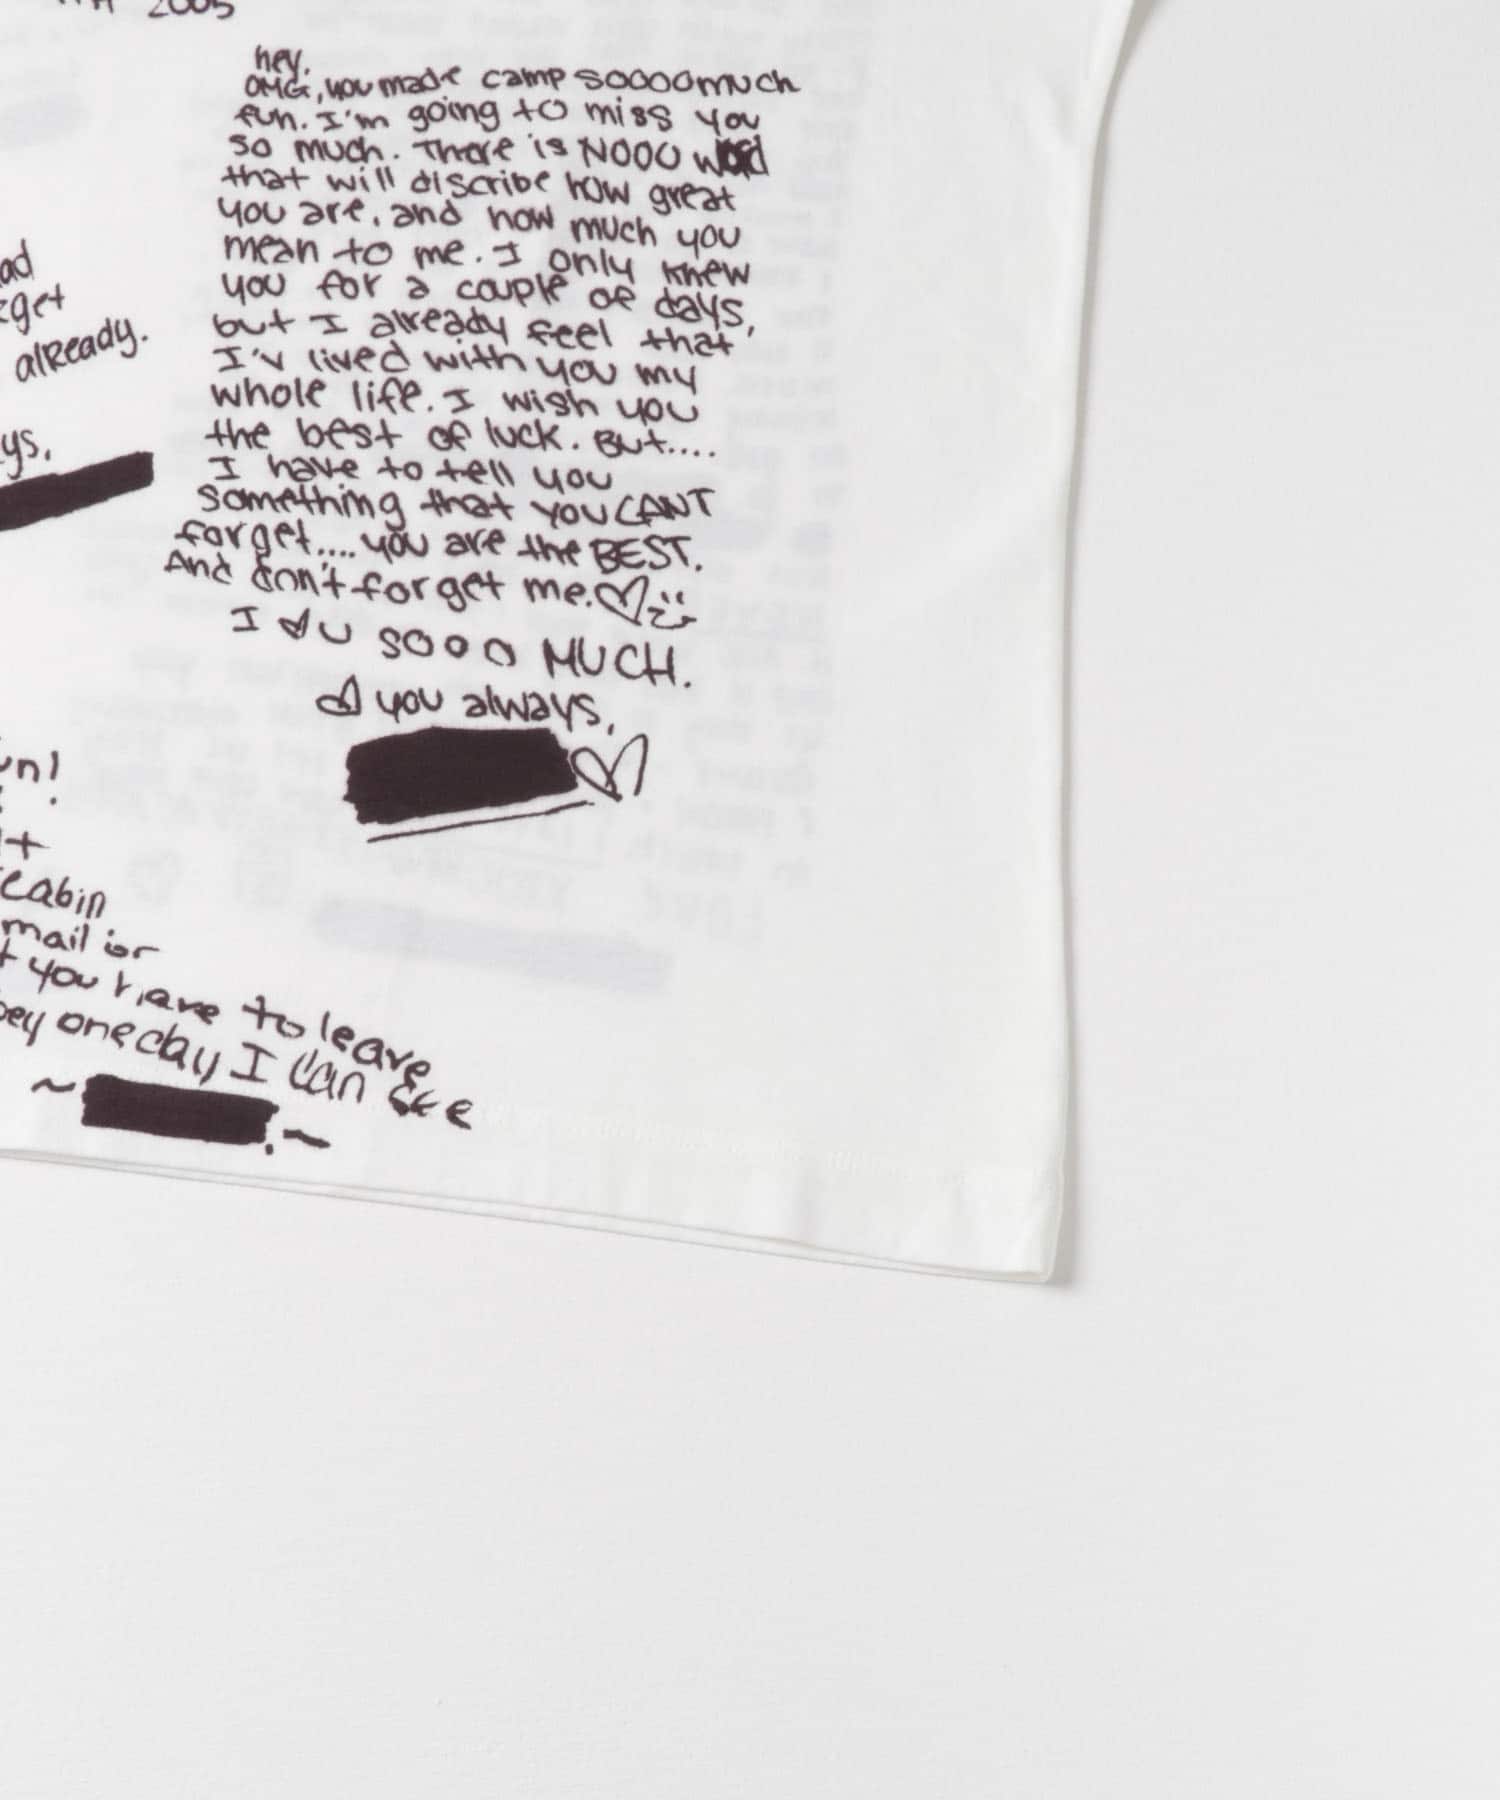 2005
hey.
OMG, you made camp soooo much
fun. I'm going to miss you
so much. There is NOOO word
that will discribe how great
you are. and how much you
mean to me. I only knew
you for a couple of days,
but I already feel that
I'v lived with you my
whole life. I wish you
the best of luck. But....
I have to tell you
something that you CANT
forget.... you are the BEST.
And don't forget me.
I U SOOO MUCH.
you always,
already.
cabin
mail or
you have to leave
one day I can see